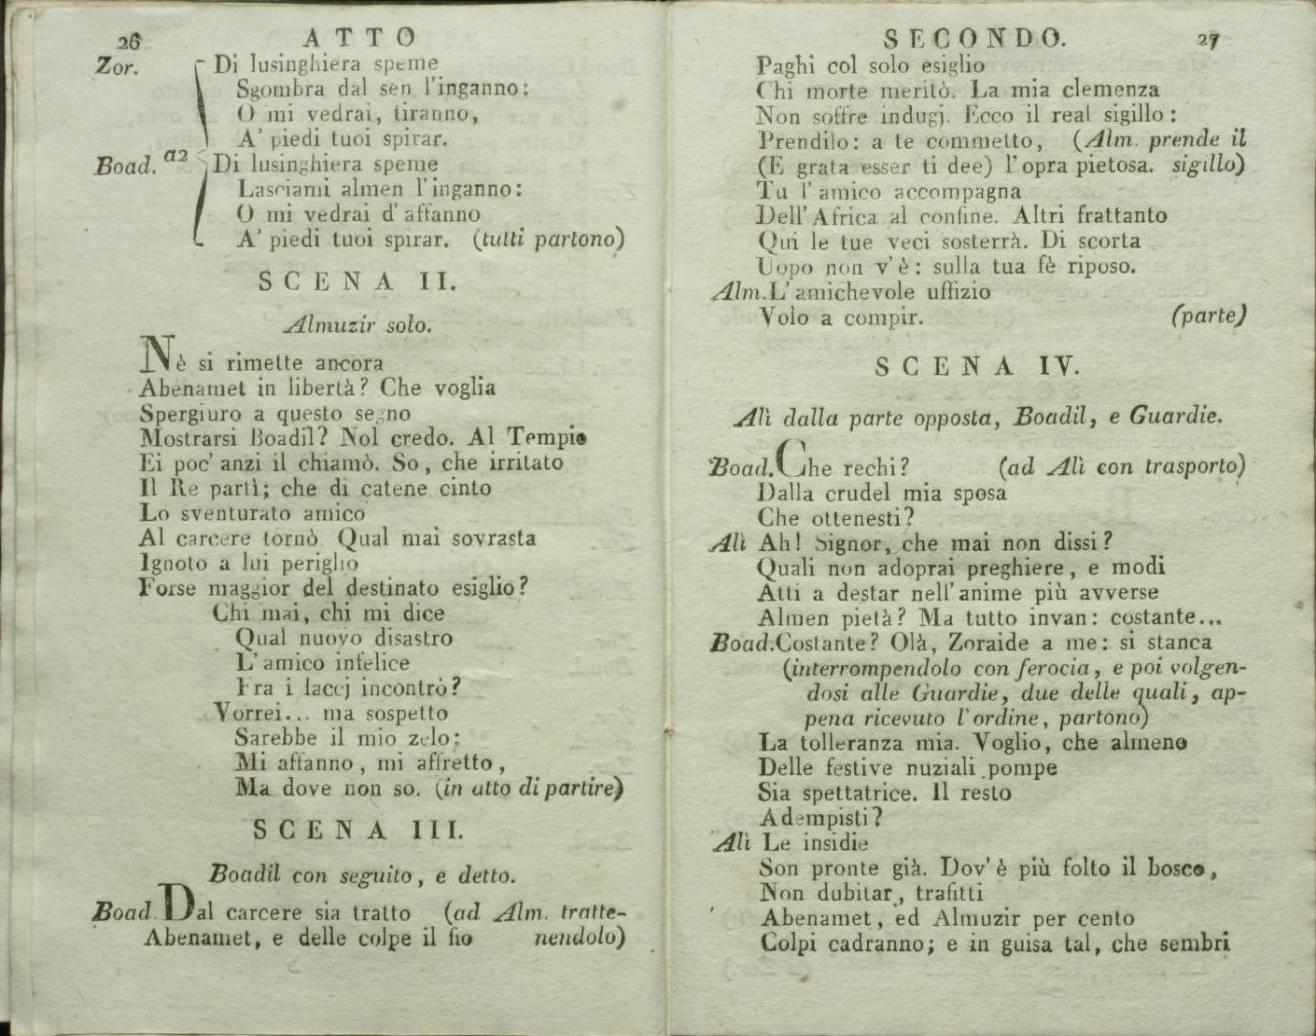 26 ATTO
Zor. Di lusinghiera speme
Sgombra dal sen l'inganno:
O mi vedrai, tiranno,
A' piedi tuoi spirar.
Boad. a2 Di lusinghiera speme
Lasciami almen l'inganno:
O mi vedrai d'affanno
A' piedi tuoi spirar. (tutti partono)
SCENA II.
Almuzir solo.
Nè si rimette ancora
Abenamet in libertà? Che voglia
Spergiuro a questo segno
Mostrarsi Boadil? Nol credo. Al Tempio
Ei poc' anzi il chiamò. So, che irritato
Il Re partì; che di catene cinto
Lo sventurato amico
Al carcere tornò. Qual mai sovrasta
Ignoto a lui periglio
Forse maggior del destinato esiglio?
Chi mai, chi mi dice
Qual nuovo disastro
L'amico infelice
Fra i laccj incontrò?
Vorrei... ma sospetto
Sarebbe il mio zelo:
Mi affanno, mi affretto,
Ma dove non so. (in atto di partire)
SCENA III.
Boadil con seguito, e detto.
Boad. Dal carcere sia tratto (ad Alm. tratte-
Abenamet, e delle colpe il fio nendolo)
SECONDO. 27
Paghi col solo esiglio
Chi morte meritò. La mia clemenza
Non soffre indugj. Ecco il real sigillo:
Prendilo: a te commetto, (Alm. prende il
(E grata esser ti dee) l'opra pietosa. sigillo)
Tu l'amico accompagna
Dell'Africa al confine. Altri frattanto
Qui le tue veci sosterrà. Di scorta
Uopo non v'è: sulla tua fè riposo.
Alm. L'amichevole uffizio
Volo a compir. (parte)
SCENA IV.
Alì dalla parte opposta, Boadil, e Guardie.
Boad. Che rechi? (ad Alì con trasporto)
Dalla crudel mia sposa
Che ottenesti?
Alì Ah! Signor, che mai non dissi?
Quali non adoprai preghiere, e modi
Atti a destar nell'anime più avverse
Almen pietà? Ma tutto invan: costante...
Boad. Costante? Olà, Zoraide a me: si stanca
(interrompendolo con ferocia, e poi volgen-
dosi alle Guardie, due delle quali, ap-
pena ricevuto l'ordine, partono)
La tolleranza mia. Voglio, che almeno
Delle festive nuziali pompe
Sia spettatrice. Il resto
Adempisti?
Alì Le insidie
Son pronte già. Dov'è più folto il bosco,
Non dubitar, trafitti
Abenamet, ed Almuzir per cento
Colpi cadranno; e in guisa tal, che sembri